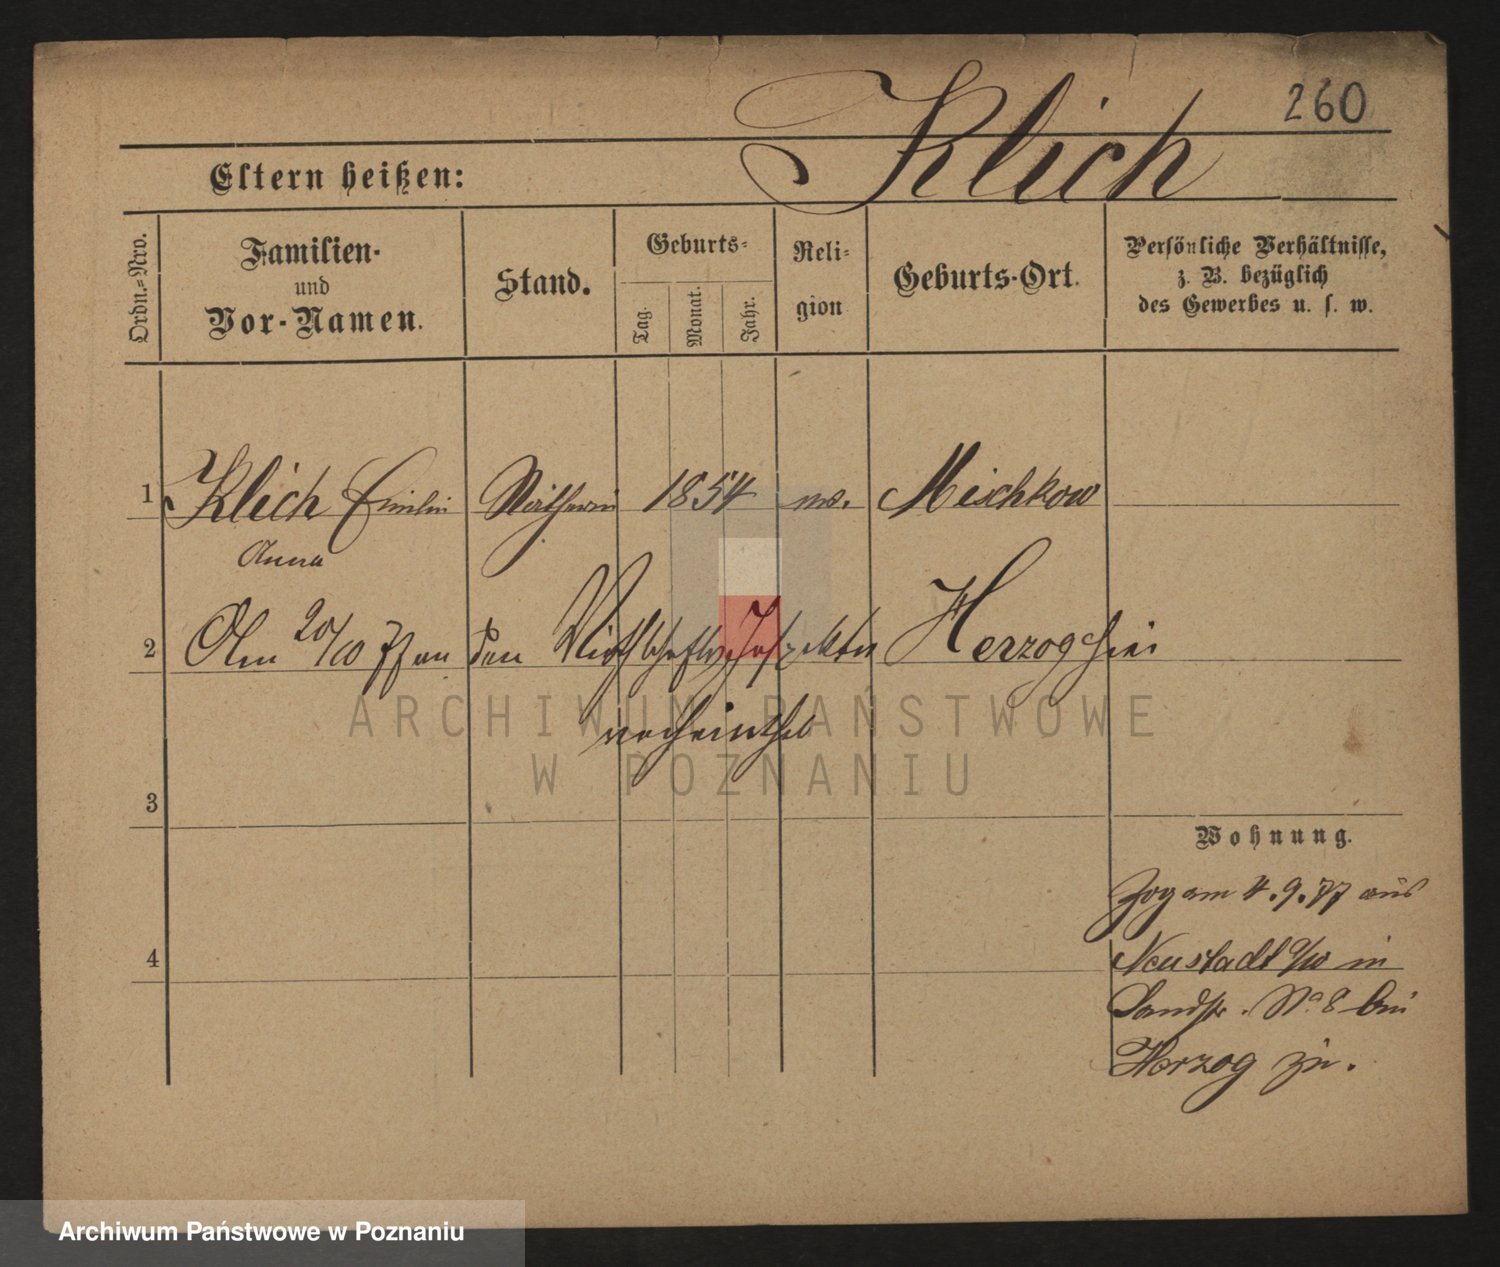 260
Klich
Eltern heißen:
Ordn.-Nro.
Familien-
und
Vor-Namen.
Stand.
Geburts-
Tag.
Monat.
Jahr.
Reli-
gion
Geburts-Ort.
Persönliche Verhältnisse,
z. B. bezüglich
des Gewerbes u. s. w.
1 Klich Emilie Nätherin 1854 Mischkow
Anna
2 Am 20/10 77 an den Wirthschafts Inspektor Herzog hier
verheirathet
ARCHIWUM PAŃSTWOWE
W POZNANIU
3
Wohnung.
Zog am 4.9.77 aus
4
Neustadt a/W in
Landstr. No 8 bei
Herzog zu.
Archiwum Państwowe w Poznaniu